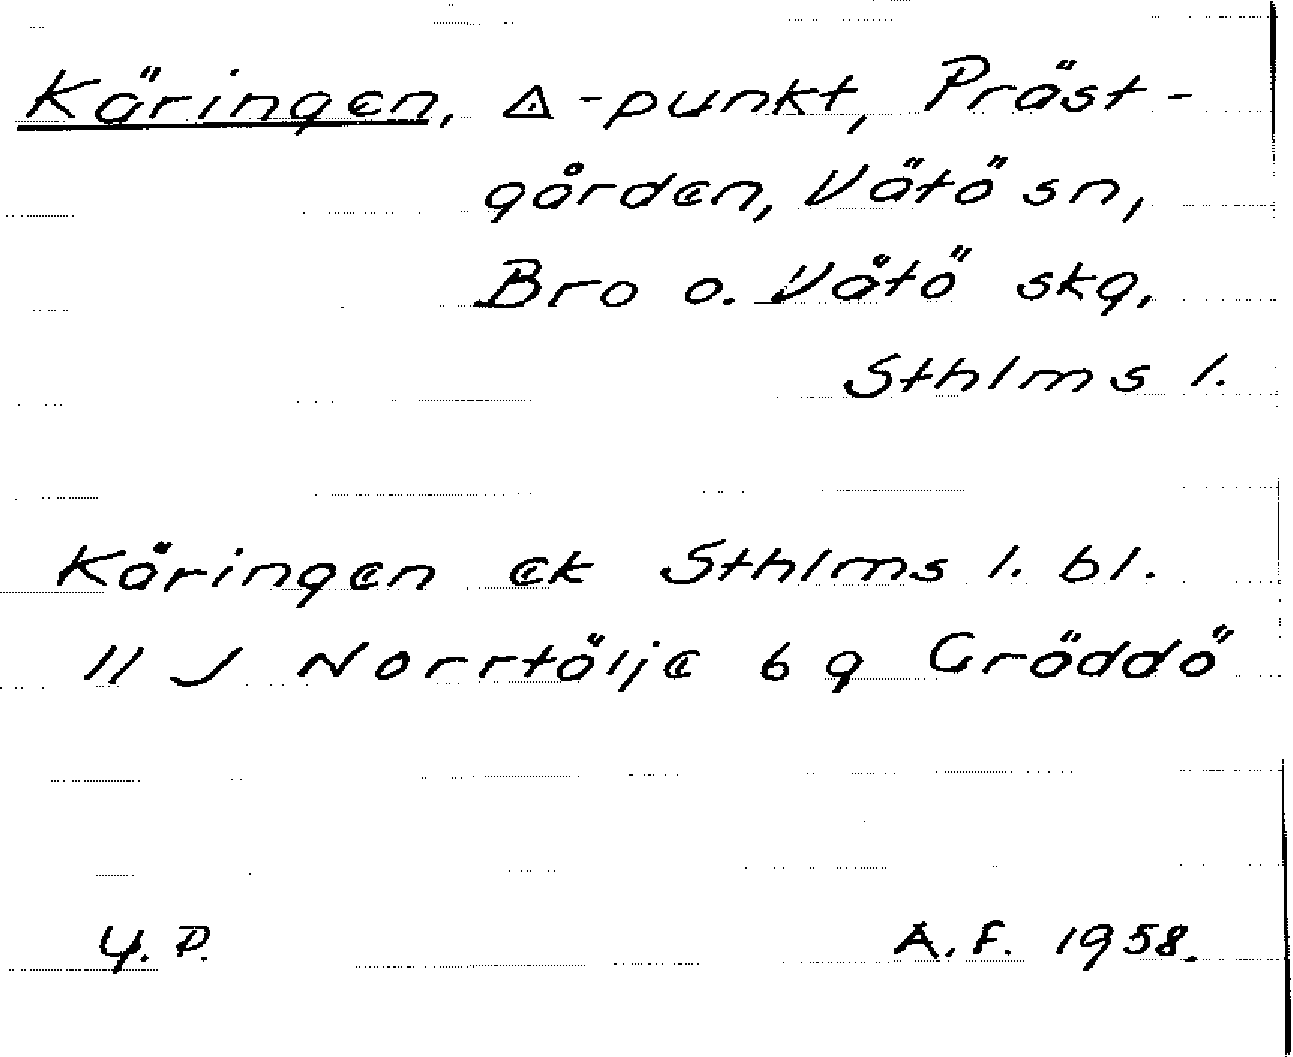 Käringen, △-punkt, Präst-
gården, Vätö sn,
Bro o. Vätö skg,
Sthlms l.
Käringen ek Sthlms l. bl.
11 J Norrtälje 6 g Gräddö
Y. P. A. F. 1958.